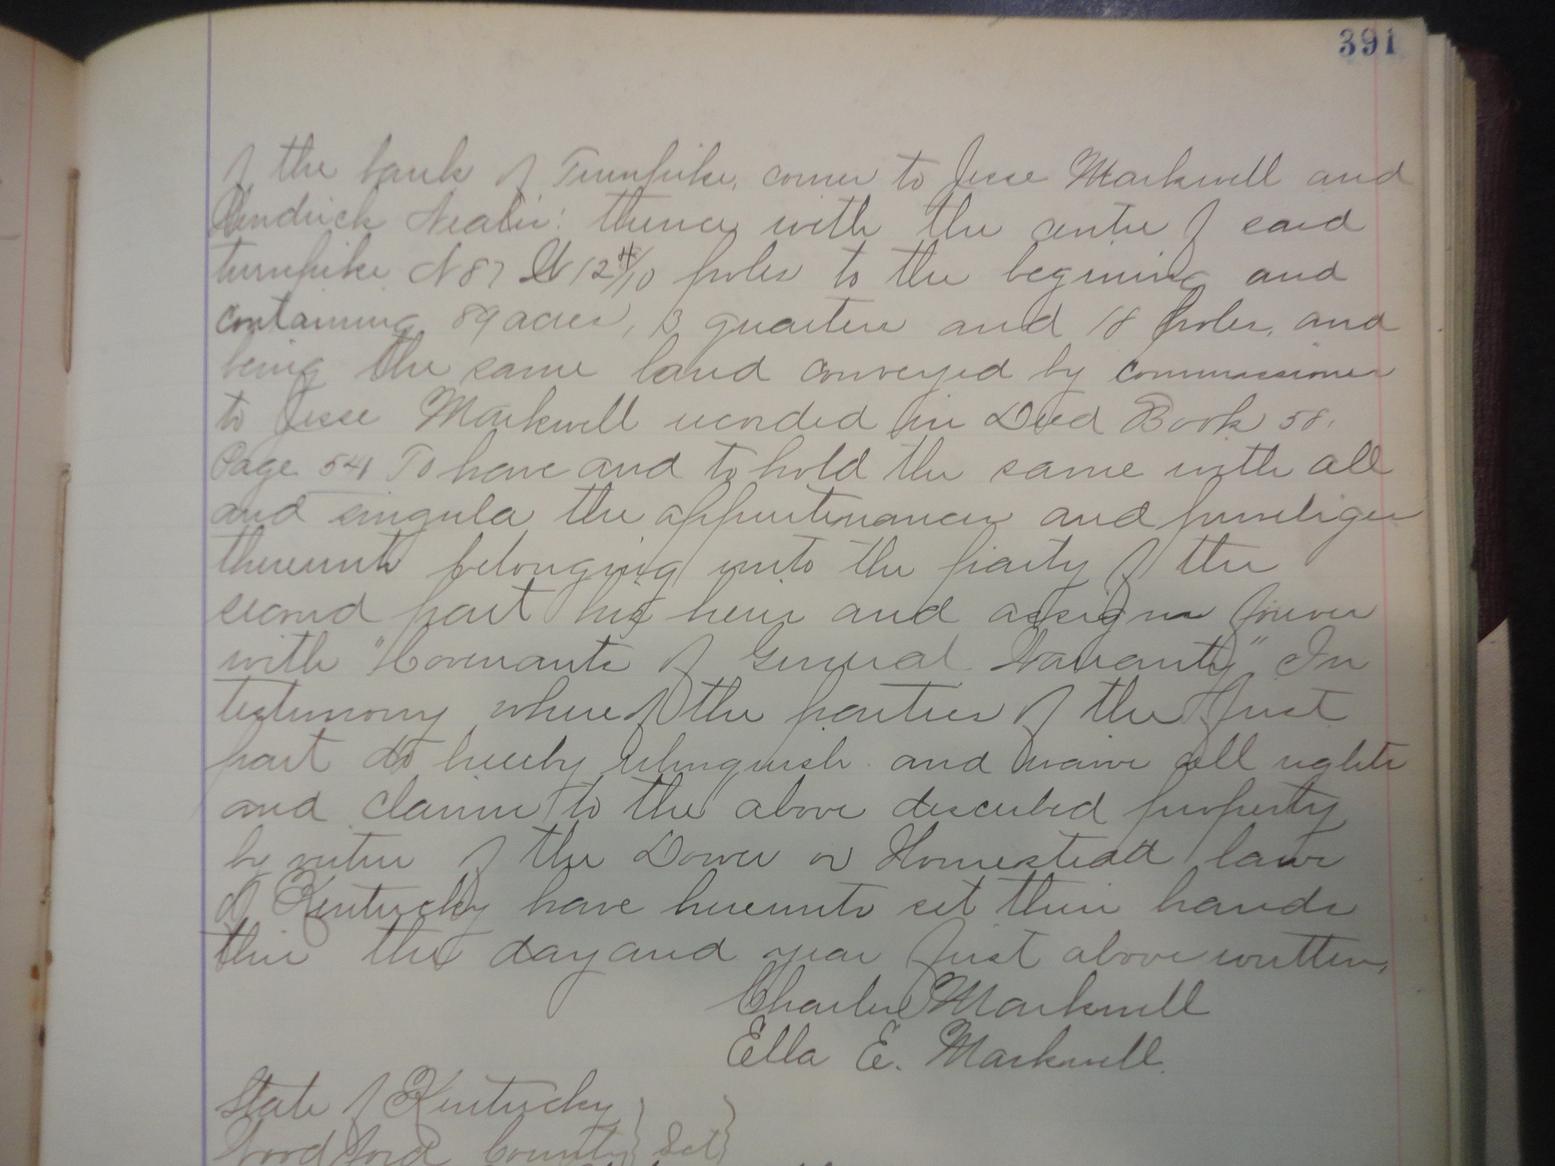 391
of the bank of Turnpike, corner to Jesse Markwell and
Hendrick thence with the centre of said
turnpike N 87 W 12 4/10 poles to the begining and
containing 89 acres, 3 quarters and 18 poles, and
being the same land conveyed by commissioner
to Jesse Markwell recorded in Deed Book 58.
Page 541 To have and to hold the same with all
and singula the appurtenances and priveliges
thereunto belonging unto the party of the
second part his heirs and assigns forever
with "Covenants of General Warranty" In
testimony whereof the parties of the first
part do hereby relinquish and waive all rights
and claims to the above described property
by virtue of the Dower or Homestead laws
of Kentucky have hereunto set their hands
this the day and year first above written.
Charles Markwell
Ella E. Markwell.
State of Kentucky
Woodford County } Sct }